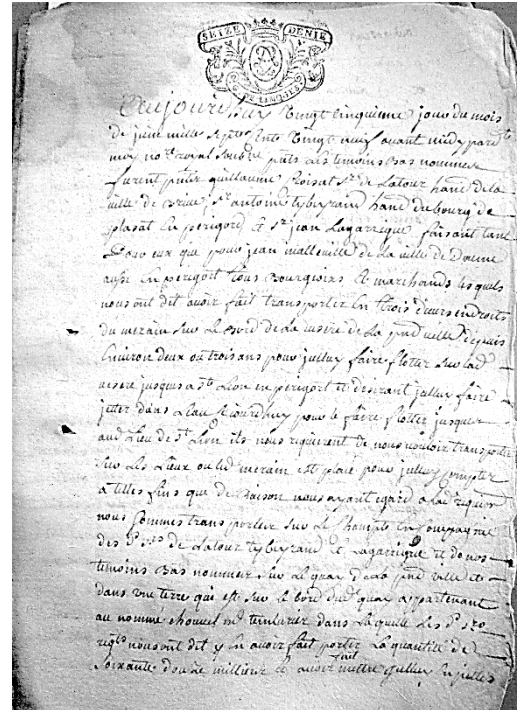 SEIZE DENIE
G. DE LIMOGES
Aujourdhuy Vingt cinquieme jour du mois
de juin mille sept cents Vingt neuf avant midy par d
moy no.re royal soubne pnts les temoins bas nommes
furent pnts guillaume Roisat sr. de Latour habt de la
ville de Brive, sr. antoine teyssand habt du bourg de
en perigord et sr. jean Lagarrigue faisant tant
pour eux que pour jean malleville de La ville de Domme
aussi en perigort tous Bourgeois et marchands lesquels
nous ont dit avoir fait transporter en trois divers endroits
du merain sur Le Bord de La vesere de La pnte ville depuis
Environ deux ou trois ans pour jcelluy faire flotter sur lad
vesere jusques a st. Lion en perigort et desirant jcelluy faire
jetter dans Leau aujourdhuy pour le faire flotter jusques
aud Lieu de st. Lion ils nous requierent de nous vouloir transporter
sur Les Lieux ou led merain est placé pour jcelluy compter
a telles fins que de Raison nous ayant egard a lad requon
nous sommes transportés sur Le champs En Compagnie
des srs. de Latour et Lagarrigue et de nos
temoins bas nommes sur Le quay de cette pnte ville et
dans une terre qui est sur le bord dud quay appartenant
au nomme chouzil dans Laquelle Les srs.
nous ont dit y En avoir fait porter La quantité de
soixante douze milliers et avoir fait mettre jcelluy En piles